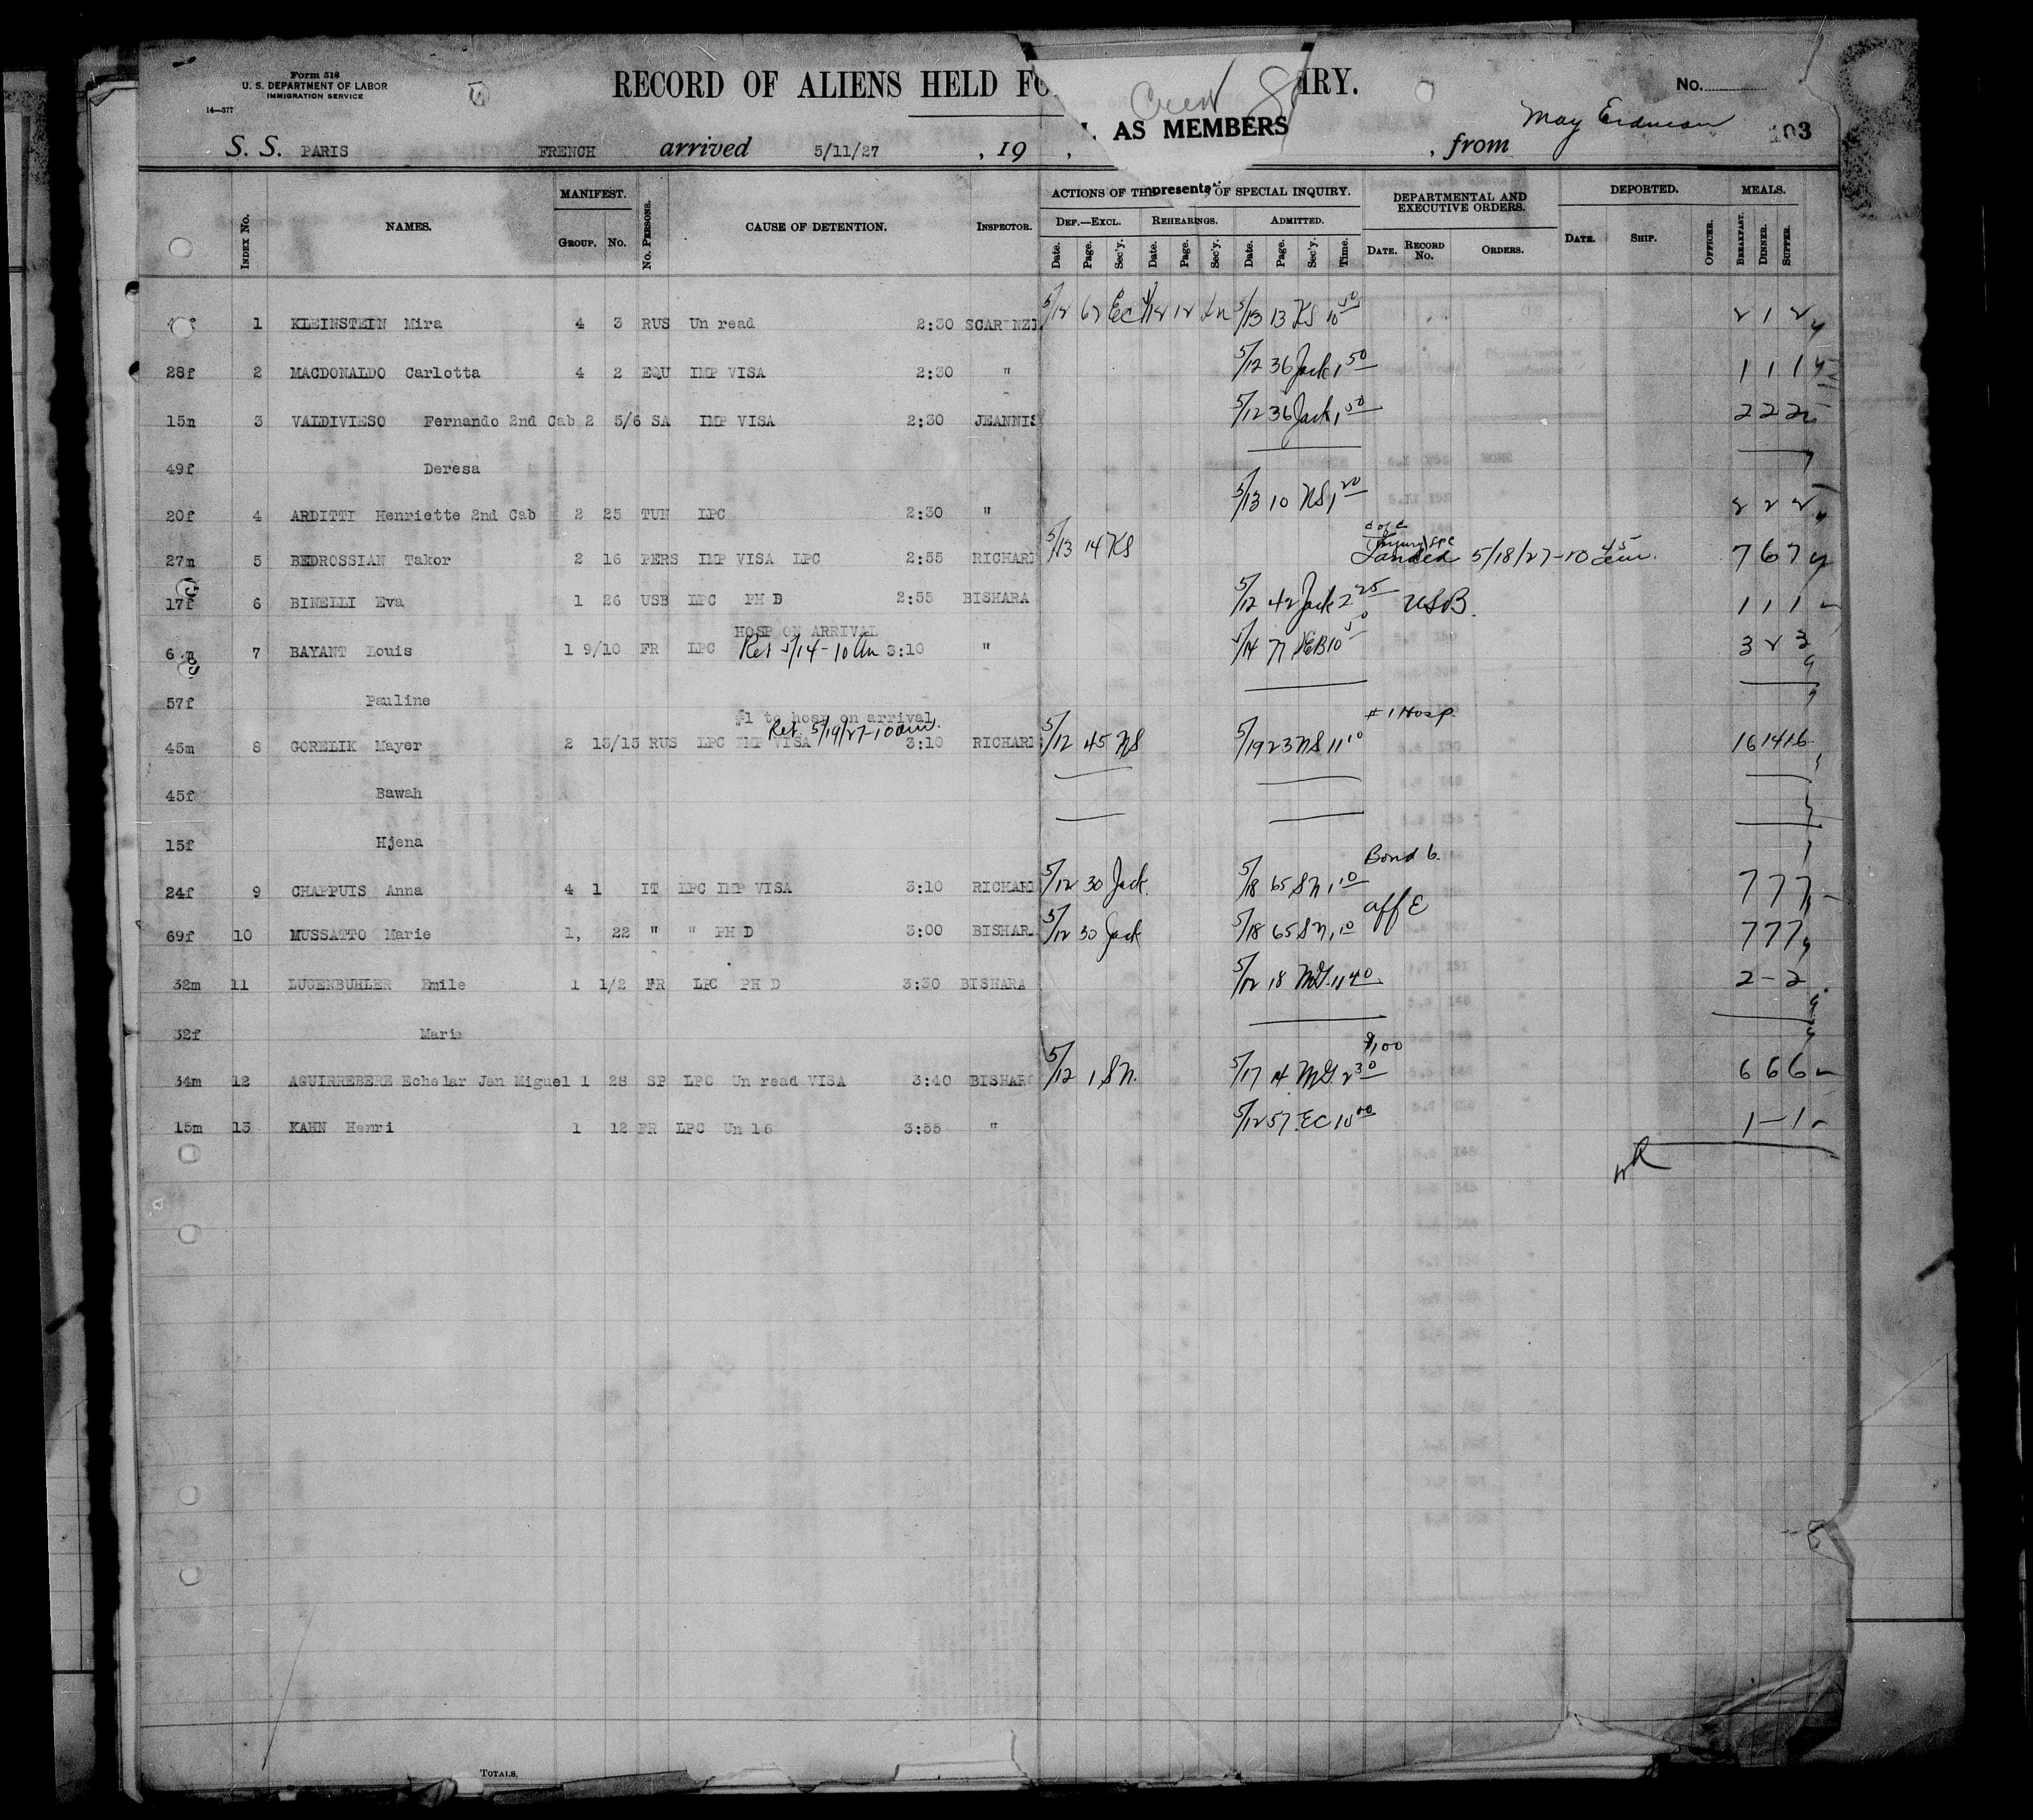 Form 518
U. S. DEPARTMENT OF LABOR
IMMIGRATION SERVICE
14—377
RECORD OF ALIENS HELD FO
IRY.
No.
AS MEMBERS
May Erdman
103
S. S. PARIS FRENCH arrived 5/11/27 , 19 , , from
presents
INDEX No. NAMES. MANIFEST. GROUP. No. No. PERSONS. CAUSE OF DETENTION. INSPECTOR. ACTIONS OF TH OF SPECIAL INQUIRY. DEPARTMENTAL AND EXECUTIVE ORDERS. DEPORTED. MEALS.
DEF.—EXCL. REHEARINGS. ADMITTED.
Date. Page. Sec'y. Date. Page. Sec'y. Date. Page. Sec'y. Time. DATE. RECORD No. ORDERS. DATE. SHIP. OFFICER. BREAKFAST. DINNER. SUPPER.
1 KLEINSTEIN Mira 4 3 RUS Un read 2:30 5/13 13 KS 10 2 1 2
28f 2 MACDONALDO Carlotta 4 2 EQU IMP VISA 2:30 " 5/12 36 Jack 1 50 1 1 1
15m 3 VALDIVIESO Fernando 2nd Cab 2 5/6 SA IMP VISA 2:30 JEANNIS 5/12 36 Jack 1 50 2 2 2
49f Deresa
20f 4 ARDITTI Henriette 2nd Cab 2 25 TUN LPC 2:30 " 5/13 10 NS 1 20 2 2 2
27m 5 BEDROSSIAN Takor 2 16 PERS IMP VISA LPC 2:55 RICHARD 5/13 14 KS Landed 5/18/27-10 45 am. 7 6 7
17f 6 BINELLI Eva 1 26 USB LPC PH D 2:55 BISHARA 5/12 42 Jack 2 25 USB. 1 1 1
HOSP ON ARRIVAL
7 BAYANT Louis 1 9/10 FR LPC Ret 5/14-10 Am 3:10 " 5/14 3 2 3
57f Pauline
#1 to hosp on arrival. # 1 Hosp.
Ret. 5/19/27-10am.
45m 8 GORELIK Mayer 2 13/15 RUS LPC IMP VISA 3:10 RICHARD 5/12 45 NS 5/19 23 NS 11 10 16 14 16
45f Bawah
15f Hjena
Bond 6.
24f 9 CHAPPUIS Anna 4 1 IT LPC IMP VISA 3:10 RICHARD 5/12 30 Jack. 5/18 65 SN 1 10 7 7 7
aff E
69f 10 MUSSATTO Marie 1, 22 " " PH D 3:00 BISHAR 5/12 30 Jack 5/18 65 SN 1 10 7 7 7
32m 11 LUGENBUHLER Emile 1 1/2 FR LPC PH D 3:30 BISHARA 5/12 18 11 40 2 - 2
32f Marie
34m 12 AGUIRREBERE Echelar Jan Miguel 1 28 SP LPC Un read VISA 3:40 BISHAR 5/12 1 SN. 5/17 14 2 30 6 6 6
15m 13 KAHN Henri 1 12 FR LPC Un 16 3:55 " 5/12 57 EC 10 00 1 - 1
TOTALS.